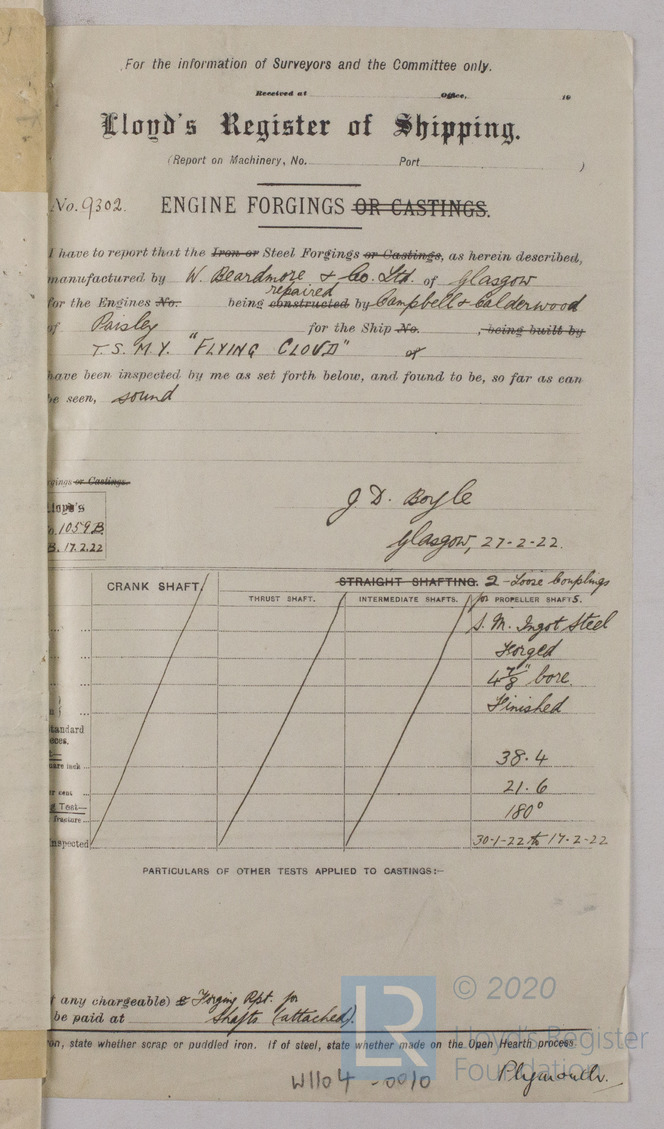 For the information of Surveyors and the Committee only.
Received at Office, 19
Lloyd's Register of Shipping.
(Report on Machinery, No. Port )
No. 9302. ENGINE FORGINGS OR CASTINGS.
I have to report that the Iron or Steel Forgings or Castings, as herein described,
manufactured by W. Beardmore & Co. Ltd. of Glasgow
repaired
for the Engines No. being constructed by Campbell & Calderwood
of Paisley for the Ship No. , being built by
T.S.M.Y. "FLYING CLOUD" of
have been inspected by me as set forth below, and found to be, so far as can
be seen, sound
gings or Castings.
Lloyd's
J D. Boyle
No. 1059 B.
B. 17.2.22
Glasgow, 27-2-22.
CRANK SHAFT. STRAIGHT SHAFTING. 2 - Loose Couplings
THRUST SHAFT. INTERMEDIATE SHAFTS. for PROPELLER SHAFTS.
S. M. Ingot Steel
Forged
4 7/8" bore.
Finished
standard
eces.
uare inch 38.4
er cent 21.6
g Test— 180°
fracture
inspected 30-1-22 to 17-2-22
PARTICULARS OF OTHER TESTS APPLIED TO CASTINGS:—
f any chargeable) £ Forging Rpt. for
be paid at Shafts (attached).
ron, state whether scrap or puddled iron. If of steel, state whether made on the Open Hearth process
W1104 - 0010 Plymouth.
LR © 2020
Lloyd's Register
Foundation